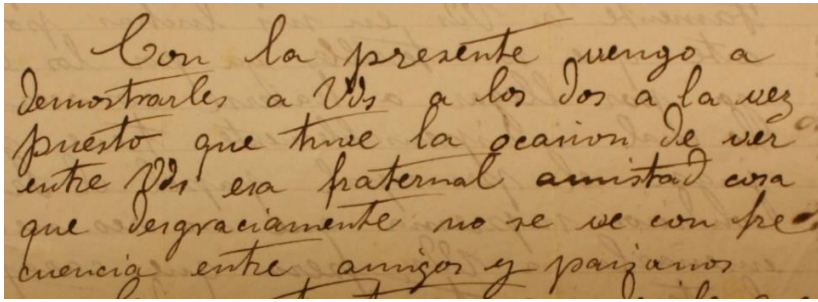 Con la presente vengo a
demostrarles a Vds a los dos a la vez
puesto que tuve la ocasion de ver
entre Vds esa fraternal amistad cosa
que desgraciamente no se ve con fre
cuencia entre amigos y paisanos